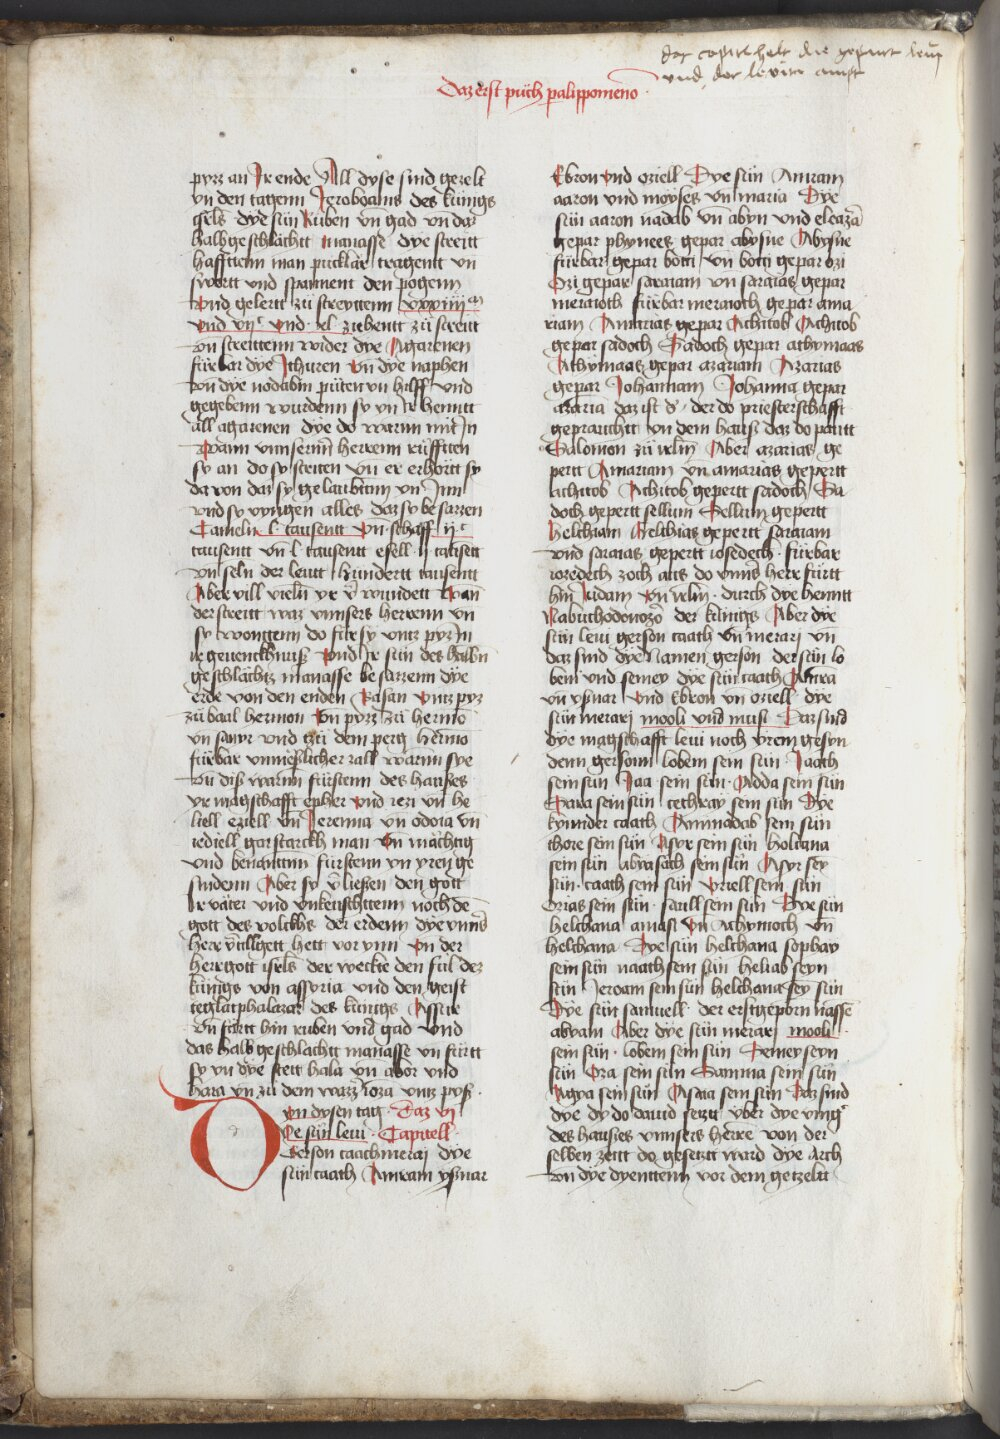 daz capitel helt die gepurt leui
und der leviten ampt
Daz erst püch paralippomeno
pyzz an Ir ende All dyse sind gezelt
vn den tagenn Jeroboams des künigs
isrl's dye sün Ruben vn̄ gad vn̄ daz
halb geschlächtt manasse dye streitt
hafftenn man pucklär tragentt vn̄
swertt und spannent den pogenn
Vnd gelertt zü streyttenn xxxiiij m
vnd vijc vnd xl ziehentt zü streitt
vn̄ streittenn wider dye Agarenen
fürbar dye Ithuren vn̄ dye naphen
vn̄ dye nodabin püten vn̄ hilff vnd
gegebenn wurdenn sy vn ir henntt
all agarenen dye do warnn mit In
Wann vnnsernn herrenn rüfften
sy an do sy striten vn̄ er erhortt sy
da von daz sy gelaubtenn vn̄ Inn
vnd sy vyngen alles daz sy besazzen
Cameln l tausentt vn̄ schaff ijc
tausentt vn̄ l tausentt esell ij tausett
vn̄ seln der leutt hundertt tausentt
Aber vill vieln yr v̄ wundett Wan
der streitt waz vnnsers herrenn vn̄
sy wontenn do für sy vntz pyz In
ir geuenckhnuß Vnd Ir sün des halbn̄
geschlächtz manasse besazzenn dye
erde von den enden Basan vntz pyz
zü baal hermon vn̄ pyzz zü hermō
vn̄ sanyr vnd tzü dem perg hermō
fürbar vnmeßlicher zall warnn sye
vn̄ diß warnn fürstenn des haußes
yr magschafft epher vnd iezi vn̄ he
liell eziell vn̄ Jeremia vn̄ odoia vn̄
iediell gar starckh man vn̄ mächtig
vnd benantenn fürstenn yn yren ge
sindenn Aber sy v̄ließen den gott
Ir väter vnd vnkeuschttenn noch dē
gott des volckhs der erdenn dye vnns̄
herr v̄tillgett hett vor ynn Vn̄ der
herr gott isrl's der weckte den sul dez
künigs von assyria vnd den geist
teglatphalazar des künigs Assur
vn̄ fürtt hin ruben vnd gad vnd
das halb geschlächtt manasse vn̄ fürtt
sy yn dye stett hala vn̄ abor vnd
hara vn̄ zü dem wazz̄ goza vntz pyß
vn dysen tag Daz vj
DJe sün leui Capitell
Gerson caath merari dye
sün caath Amram ysuar
Ebron vnd oziell Dye sün Amram
aaron vnd moyses vn̄ maria Dye
sün aaron nadab vn̄ abyu vnd eleazā
gepar phynees gepar abysue Abysue
fürbar gepar bocci vn̄ bocci gepar ozi
Ozi gepar saraiam vn̄ saraias gepar
meraioth fürbar meraioth gepar ama
riam Amarias gepar Achitob Achitob
gepar sadoch Sadoch gepar achymaas
Achymaas gepar azariam Azarias
gepar Johannam Johanna gepar
azaria daz ist d' der do priesterschafft
gepraucht vn dem hauß daz do pautt
Salomon zü irlm̄ Aber azarias ge
pertt Amariam vn̄ amarias gepertt
achitob Achitob gepertt sadoch Sa
doch gepertt sellum Sellum gepertt
helchiam Helchias gepertt saraiam
vnd saraias gepertt iosedech fürbar
iozedech zoch aus do vnns̄ herr fürtt
hin Iudam vn̄ irlm̄ durch dye henntt
Nabuchodonozor der künigs Aber dye
sün leui gerson caath vn̄ merari vn̄
daz sind dye Namen gerson der sün lo
beni vnd semey dye sün caath Amrā
vn̄ ysuar vnd Ebron vn̄ oziell dye
sün merari mooli vnd musi Daz sind
dye magschafft leui noch yrem gesyn
denn gersonn lobem sein sün Jaath
sein sün Jaa sein sün Adda sein sün
Zara sein sün iethray sein sün Dye
kynnder caath Aminadab sein sün
chore sein sün Asyr sein sün helcana
sein sün abyasath sein sün Asyr sey
sün caath sein sün vriell sein sün
Ozias sein sün saull sein sün Dye sün
helchana amasi vn̄ Achymoth vn̄
helchana Dye sün helchana sophay
sein sün naath sein sün heliab seyn
sün Jeroam sein sün helchana sey sün
Dye sün samuell der erstgeporn nassē
abyam Aber dye sün merari mooli
sein sün lobem sein sün Semey seyn
sün Oza sein sün Samma sein sün
Agya sein sün Asaia sein sün Daz sind
dye dy do dauid setzt vber dye syngˀ
des hauses vnnsers herre von der
selben zeitt do gesetzt ward dye Arch
vn̄ dye dyenttenn vor dem getzeltt